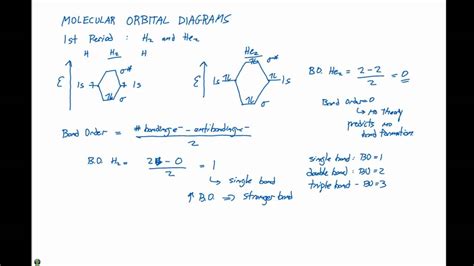 MOLECULAR ORBITAL DIAGRAMS
1st Period : H₂ and He₂
H H₂ H
E 1s 1s σ* σ
He₂
E 1s 1s σ* σ
B.O. He₂ = 2-2 / 2 = 0
Bond order = 0
↳ MO Theory
predicts no
bond formation.
Bond Order = # bonding e⁻ - antibonding e⁻ / 2
B.O. H₂ = 2 - 0 / 2 = 1
↳ single bond
↑ B.O. ⇒ Stronger bond
single bond : BO = 1
double bond : BO = 2
triple bond - BO = 3